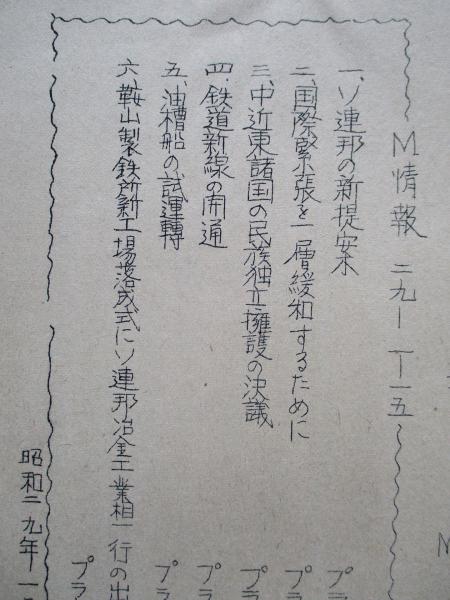 M情報 二九ー 一ー一五
一、ソ連邦の新提案 プラ
二、国際緊張を一層緩和するために プラ
三、中近東諸国の民族独立擁護の決議 プラ
四、鉄道新線の開通 プラ
五、油槽船の試運轉 プラ
六、鞍山製鉄所新工場落成式にソ連邦冶金工業相一行の出
プラ
昭和二九年一